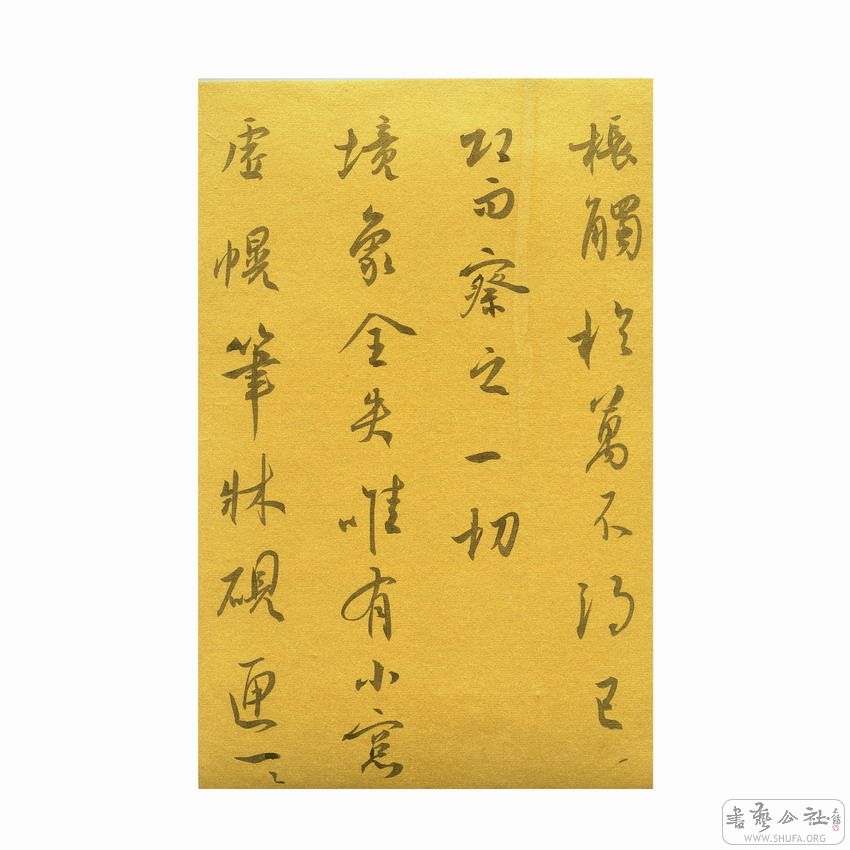 棖觸於萬不得已、
即而察之一切
境象全失唯有小窓
虛幌筆牀硯匣一々
書藝公社
WWW.SHUFA.ORG